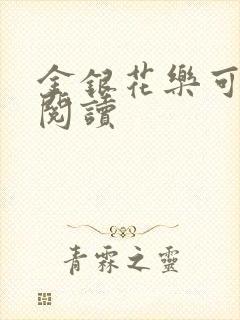 金銀花樂可
閱讀
青霖之靈